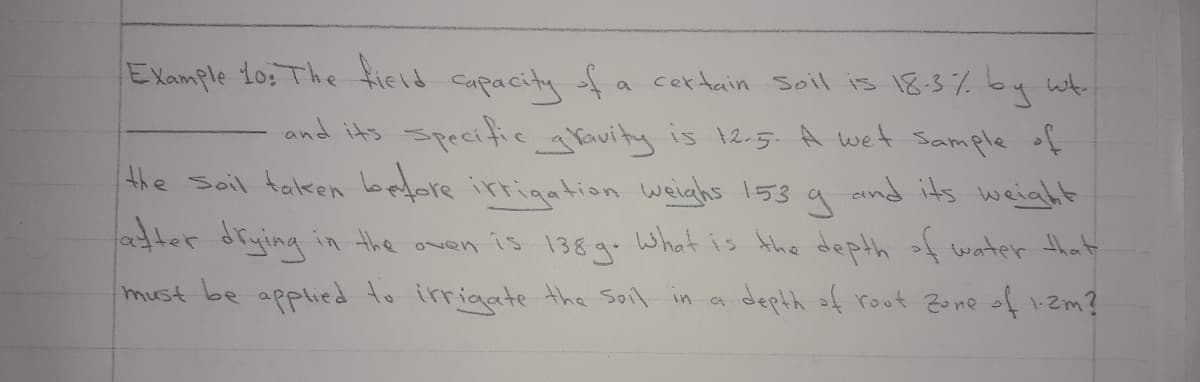 Example 10: The field capacity of a certain soil is 18.3% by wt.
and its specific gravity is 12.5. A wet sample of
the soil taken before irrigation weighs 153 g and its weight
after drying in the oven is 138g. What is the depth of water that
must be applied to irrigate the soil in a depth of root zone of 1.2m?